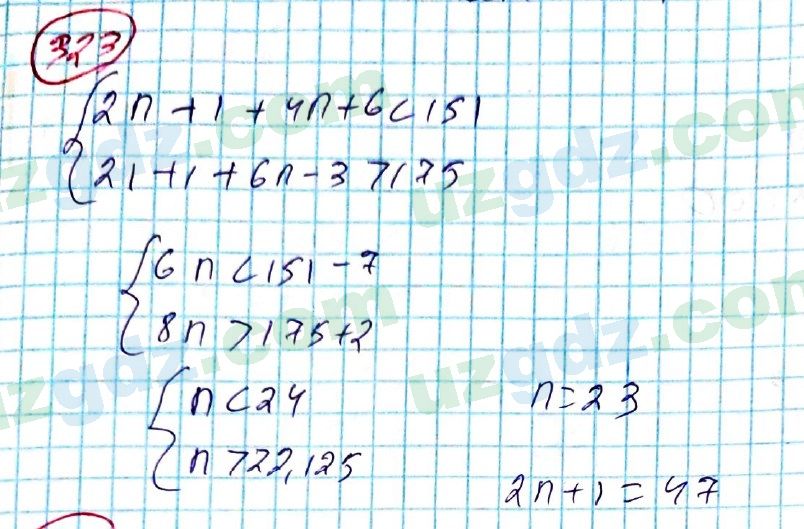 323
{2n + 1 + 4n + 6 < 151
{21 + 1 + 6n - 3 > 175
{6n < 151 - 7
{8n > 175 + 2
{n < 24
n = 23
{n > 22,125
2n + 1 = 47
uzgdz.com
uzgdz.com
uzgdz.com
uzgdz.com